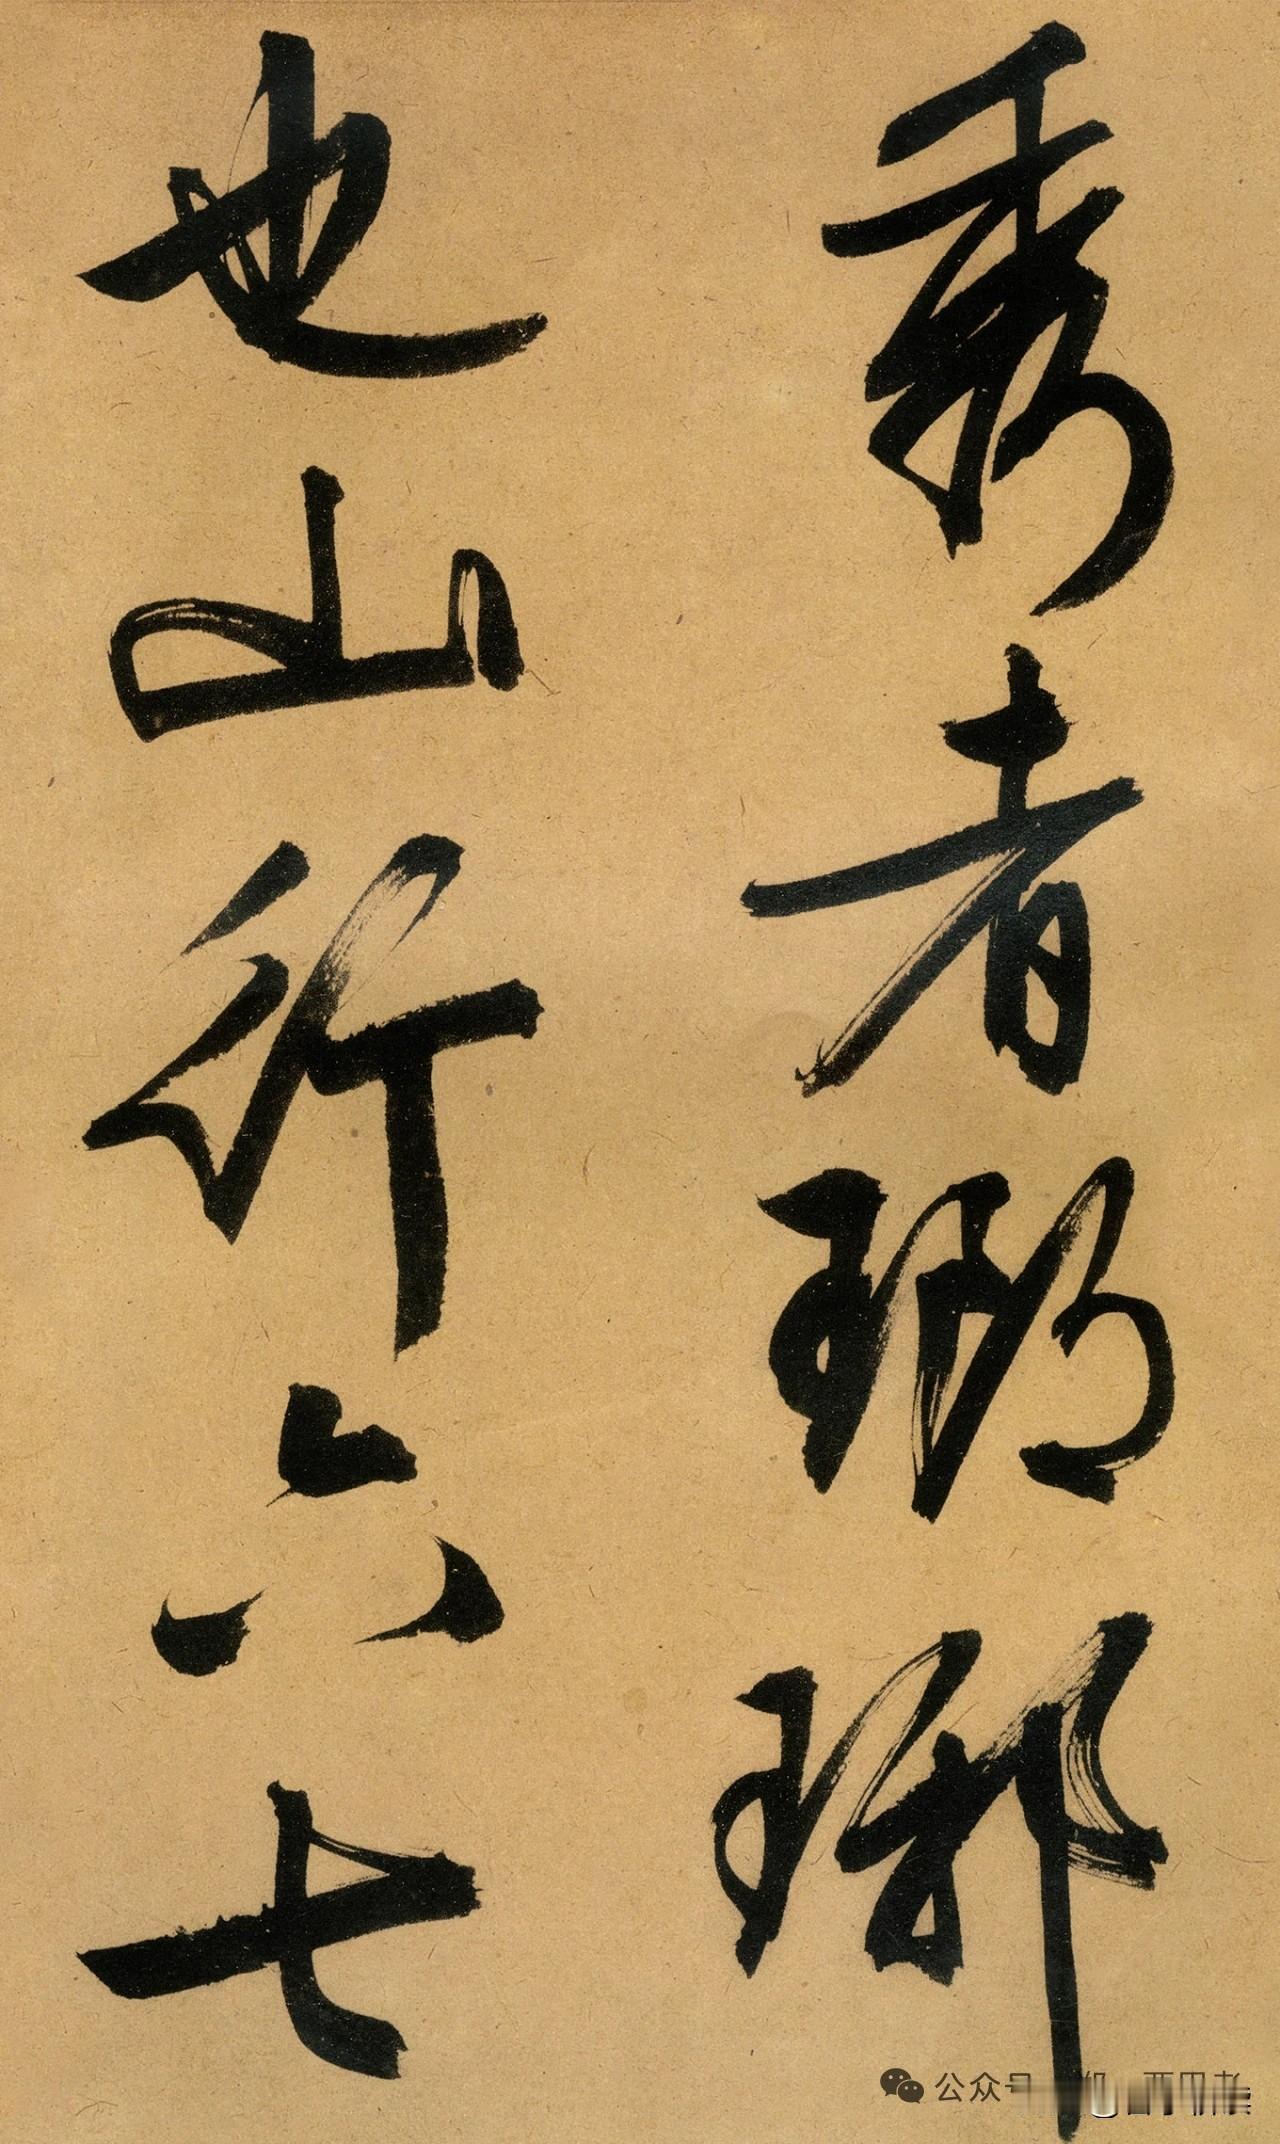 秀者瑯琊
也山行六七
公众号